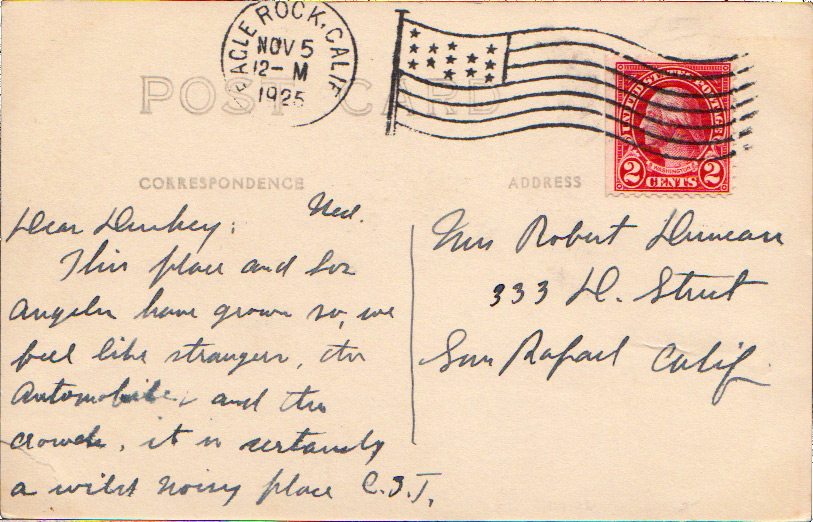 EAGLE ROCK, CALIF
NOV 5
12- M
1925
POST CARD
UNITED STATES POSTAGE
WASHINGTON
2 CENTS 2
CORRESPONDENCE
ADDRESS
Wed.
Dear Dunkey;
This place and Los
Angeles have grown so, we
feel like strangers, the
Automobile, and the
crowds, it is certainly
a wild noisy place C.S.T.
Mrs Robert Duncan
333 D. Street
San Rafael Calif.